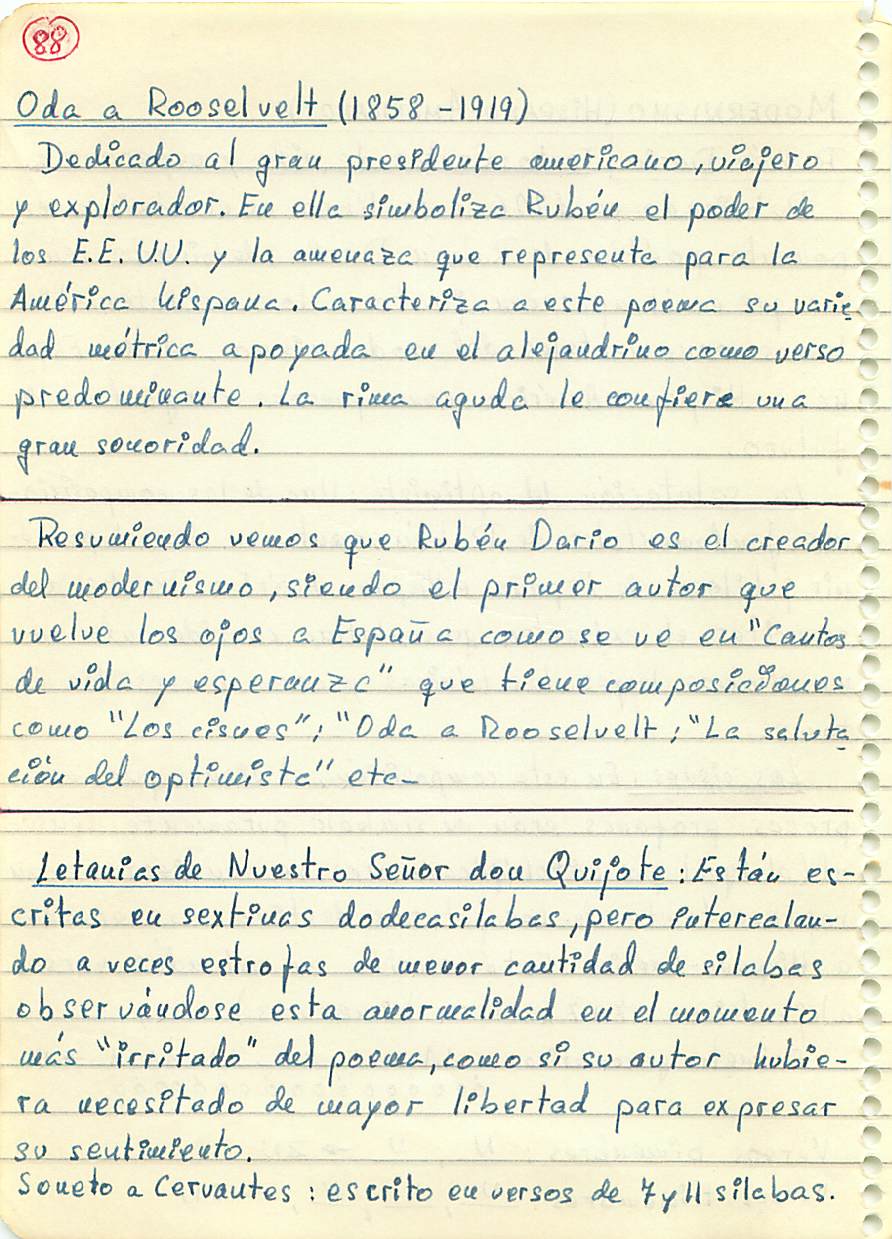 88
Oda a Rooselvelt (1858-1919)
Dedicado al gran presidente americano, viajero
y explorador. En ella simboliza Rubén el poder de
los E.E. U.U. y la amenaza que representa para la
América hispana. Caracteriza a este poema su varie
dad métrica apoyada en el alejandrino como verso
predominante. La rima aguda le confiere una
gran sonoridad.
Resumiendo vemos que Rubén Dario es el creador
del modernismo, siendo el primer autor que
vuelve los ojos a España como se ve en "Cantos
de vida y esperanza" que tiene composiciones
como "Los cisnes"; "Oda a Rooselvelt; "La saluta
ción del optimista" etc-
Letanias de Nuestro Señor don Quijote: Están es-
critas en sextinas dodecasilabas, pero intercalan-
do a veces estrofas de menor cantidad de silabas
observándose esta anormalidad en el momento
más "irritado" del poema, como si su autor hubie-
ra necesitado de mayor libertad para expresar
su sentimiento.
Soneto a Cervantes: escrito en versos de 7 y 11 silabas.